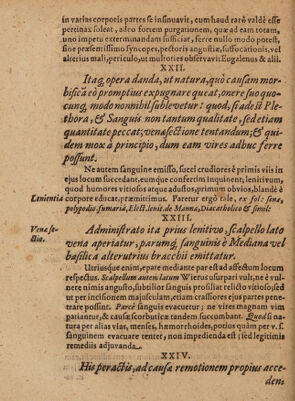 in varias corporis partes se insinuavit, cum haud rarò valdè esse
pertinax soleat, adeo forem purgationem, quæ ad eam totam,
uno impetu exterminandam sufficiat, ferre nullo modo potest,
sine præsentissimo syncopes, pectoris angustiæ, suffocationis, vel
alterius mali, periculo, ut multories observavit Eugalenus & alii.
XXII.
Itaq; opera danda, ut natura, quò causam mor-
bificã eò promptius expugnare queat, onere suo quo-
cunq; modo nonnihil sublevetur: quod, si adest Ple-
thora, & Sanguis non tantum qualitate, sed etiam
quantitate peccat, venæsectione tentandum; & qui-
dem mox à principio, dum eam vires adbuc ferre
possunt.
Ne autem sanguine emisso, succi crudiores è primis viis in
ejus locum succedant, eumque confertim inquinent, lenitivum,
quod humores vitiosos atque adustos, primum obvios, blandè è
Lenientia
corpore educat, præmittimus. Paretur ergò tale, ex fol: senæ,
polypodio, fumariâ, Elect. lenit. de Mannâ, Diacatholico & simil:
XXIII.
Venæ se-
ctio.
Administrato ita prius lenitivo, scalpello lato
vena aperiatur, parumq; sanguinis è Mediana vel
basilica alterutrius bracchii emittatur.
Utriusque enim, mediante par est ad affectum locum
respectus. Scalpellum autem latum Wierus usurpari vult, ne è vulne-
re nimis angusto, subtilior sanguis prosiliat relicto vitiosio, sed
ut per incisionem majusculam, etiam crassiores ejus partes pos-
sint permeare. Parcè sanguis evacuetur; ne vires magnam vim
patiantur, & causæ scorbuticæ tandem succumbant. Quod si na-
tura per alias vias, menses, hæmorrhoides, potius quàm per v. s.
sanguinem evacuare tentet, non impedienda est; sed legitimis
remediis adjuvanda.
XXIV.
His peractis, ad causæ remotionem propius acce-
den-